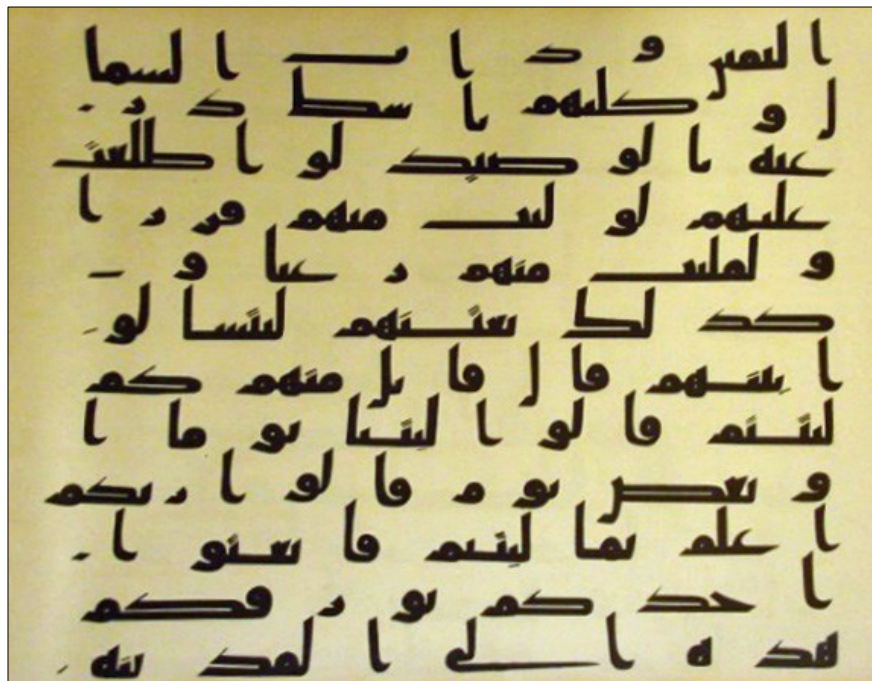 اليمين وذات الشما
ل وكلبهم بسط ذر
عيه بالوصيد لو اطلعت
عليهم لوليت منهم فررا
ولملئت منهم رعبا و
كذلك بعثنهم ليتسالو
ا بينهم قال قايل منهم كم
لبثتم قالوا لبثنا يوما ا
و بعض يوم قالوا ربكم
اعلم بما لبثتم فابعثوا
احدكم بورقكم
هذه الى المدينه